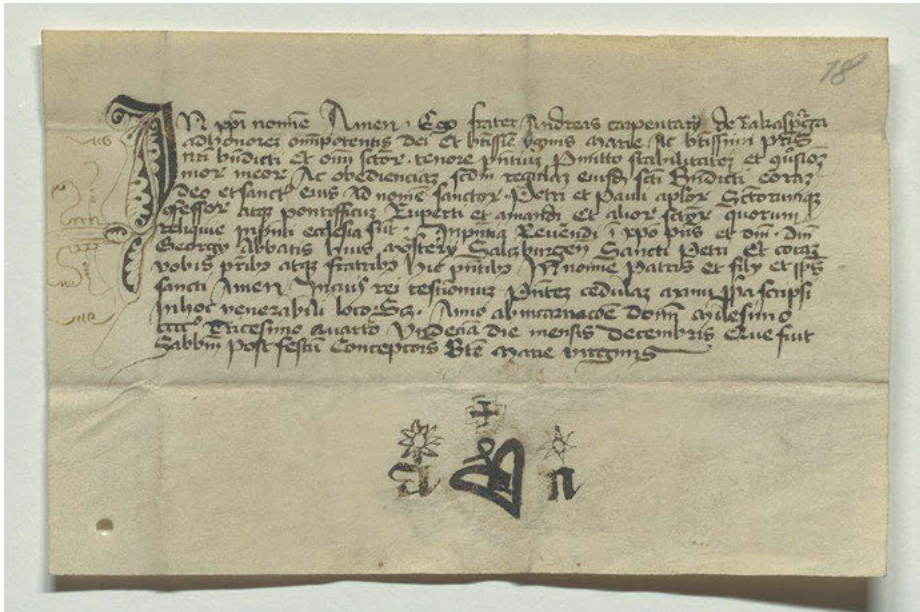 18
IN xpi nomine Amen. Ego frater Andreas carpentarij de
ad honorem omnipotentis dei Et btissime vginis Marie Ac btissimi pris
nri bndicti Et omi sctor. tenore pntium Pmitto stabilitatem et
mor meor Ac obedienciam scdm regulam eiusd scti Bndicti coram
Deo et sanct eius Ad nomen sanctor Petri et Pauli aplor Sctorumque
9fessor atque pontificum Ruperti et amandi Et alior sctor quorum
reliquie in ecclesia Reverendi i xpo pris et dni dni
Georgy Abbatis huius Saltzburgen Sancti Petri Et coram
vobis pribus atque fratribus hic pntibus In nomine Patris et filij et sps
sancti Amen In cuius rei testimonium pntem cedulam manu ppa scripsi
In hoc venerabili loco Anno ab incarnacoe domi Milesimo
cccc Tricesimo quarto Undecima die mensis Decembris Que fuit
Sabbm post festum Concepcois Bte Marie virginis
a n